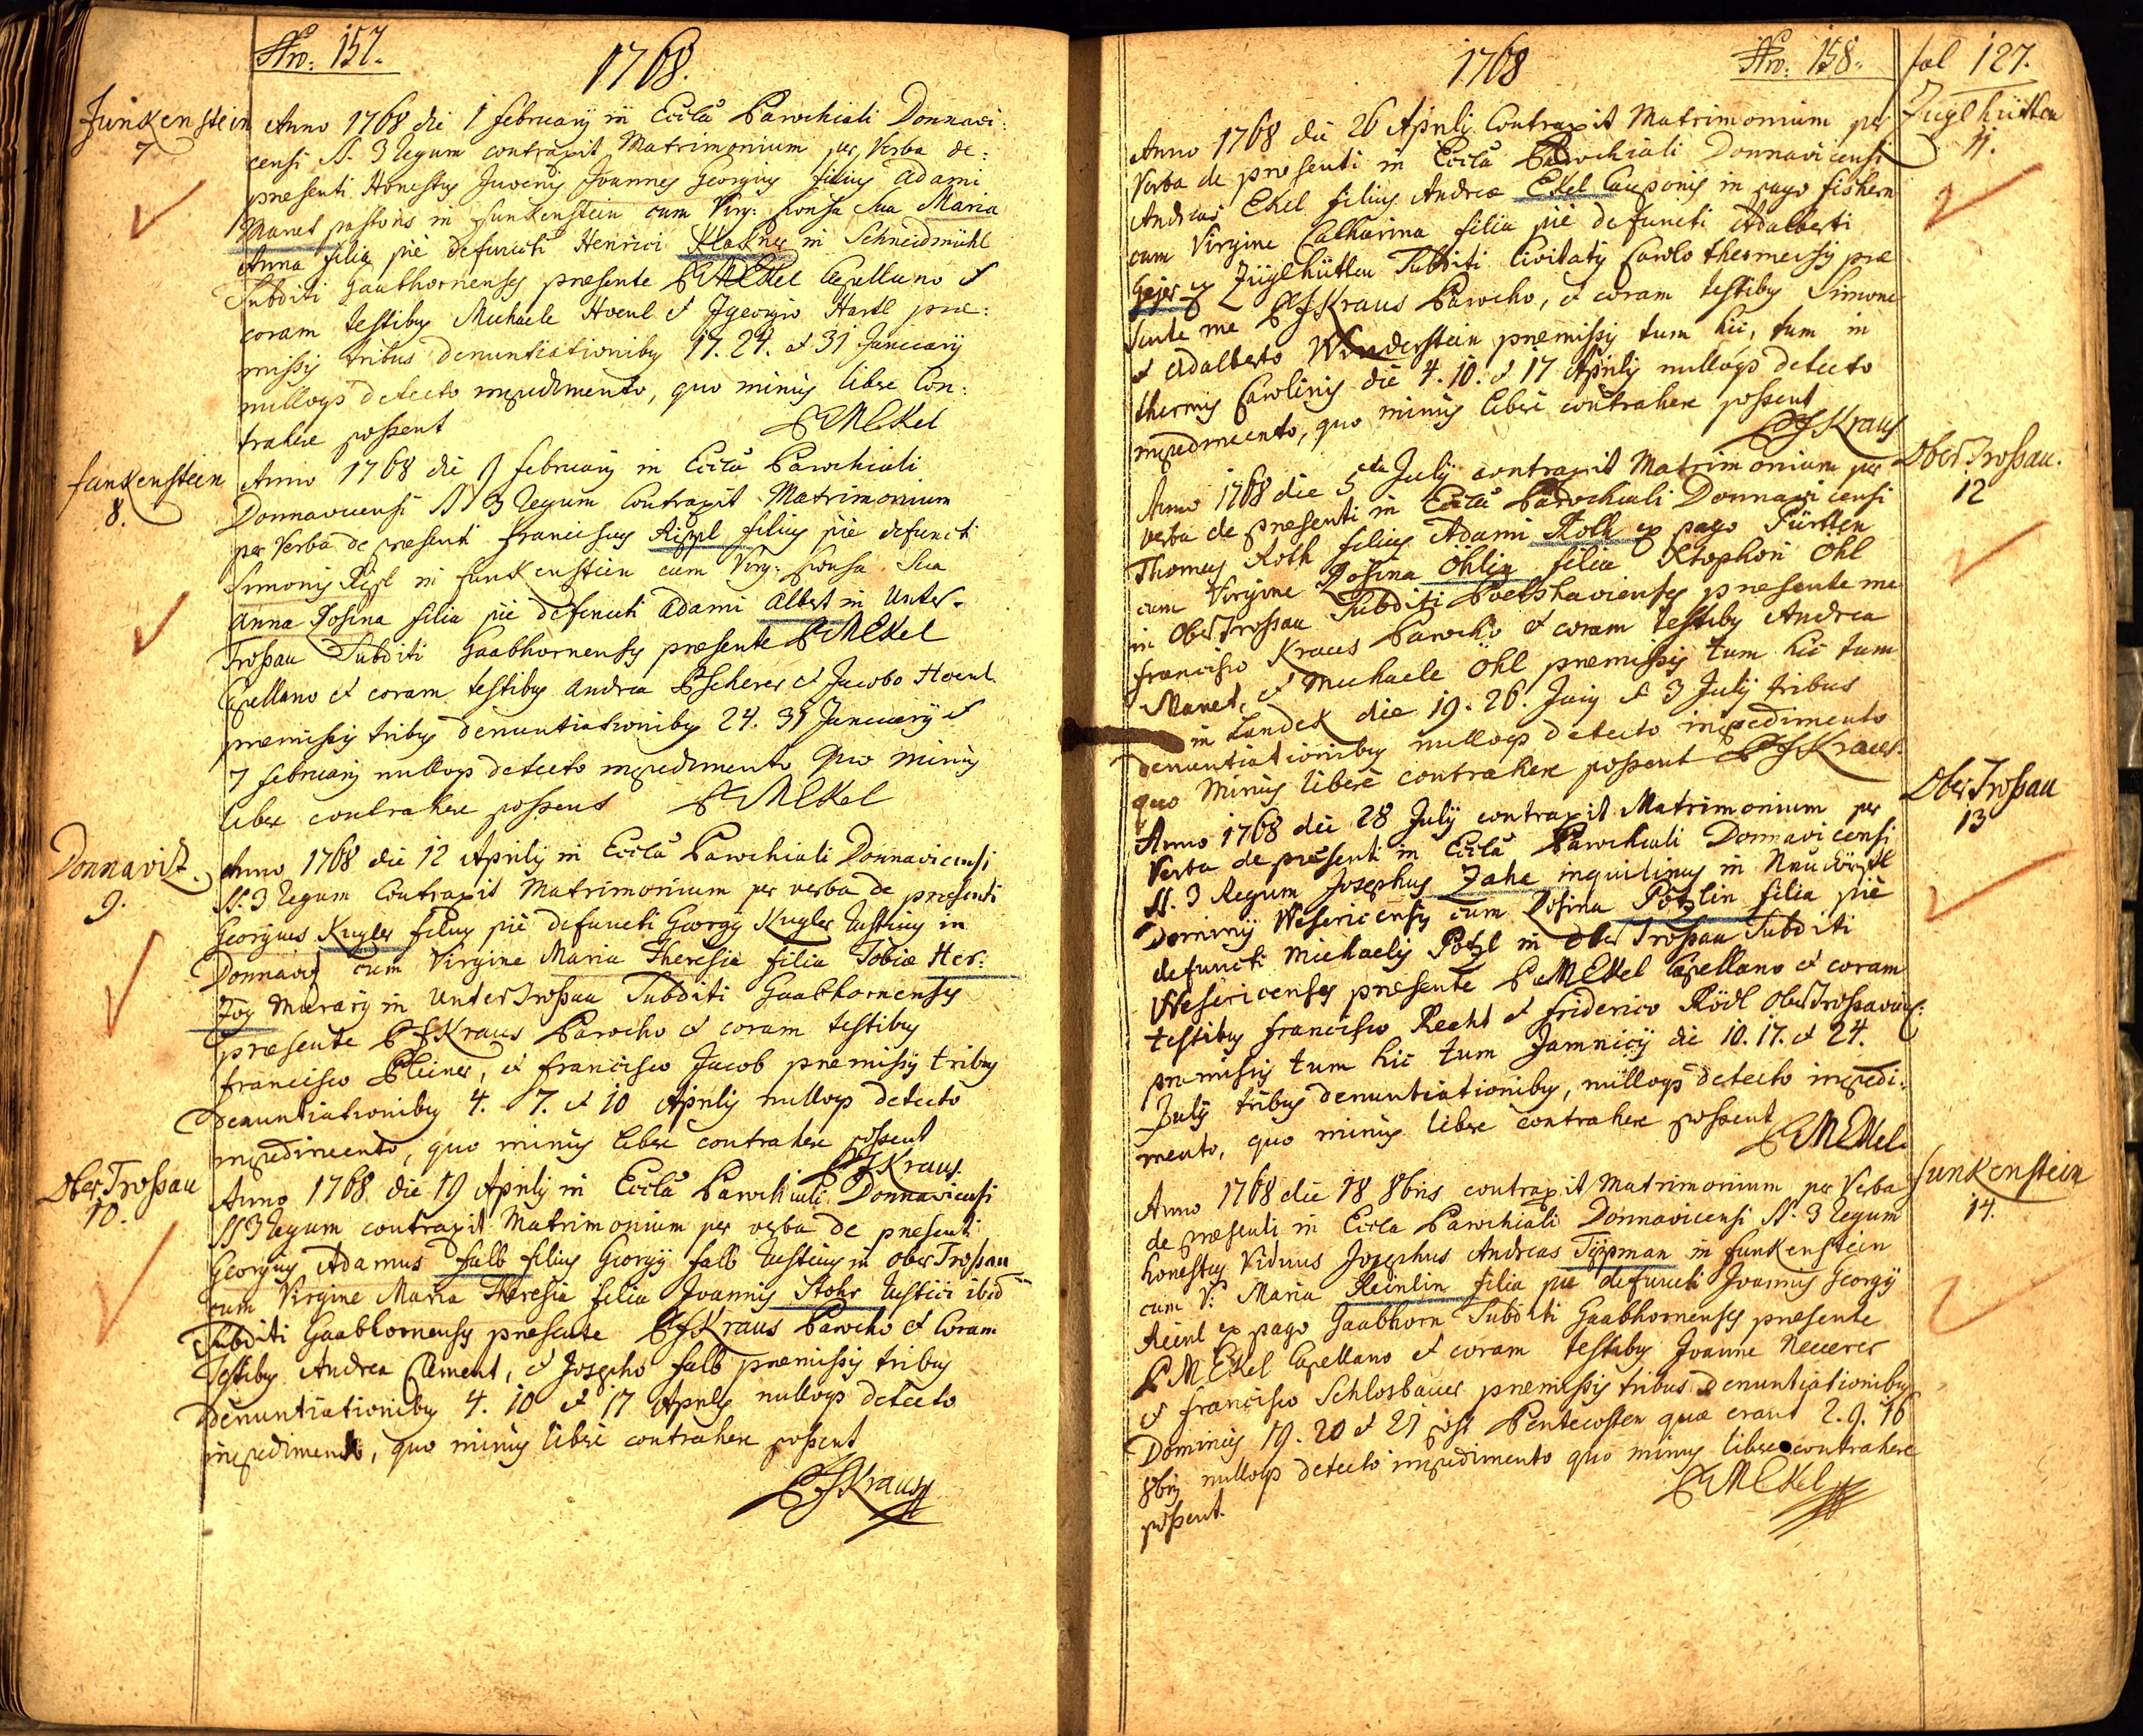 Nro: 157.
1768.
Funkenstein
7
Anno 1768 die 1 february in Eccla Parochiali Donnavi:
censi SS. 3 Regum contraxit Matrimonium per Verba de:
presenti Honestus Juvenis Joannes Georgius filius Adami
Manet pastoris in Funkenstein cum Virg: sponsa sua Maria
Anna filia piè defuncti Henrici Klakner in Schneidmühl
Subditi Gaabhornenses presente P M Ekel Capellano et
coram testibus Michaele Hoenl et Georgio Hartl prae:
missis tribus denuntiationibus 17. 24. et 31 January
nulloque detecto impedimento, quo minus libere Con:
trahere possent
P M Ekel
funkenstein
8.
Anno 1768 die februarij in Eccla Parochiali
Donnavicensi SS 3 Regum Contraxit Matrimonium
per Verba de presenti franciscus Rippl filius piè defuncti
Simonis Ripl in funkenstein cum Virg: sponsa sua
Anna Rosina filia piè defuncti Adami Albert in Unter-
Troßau Subditi Gaabhornenses presente P M Ekel
Capellano et coram testibus Andrea Pscherer et Jacobo Hoenl
premissis tribus denuntiationibus 24. 31 January et
7 februarij nulloque detecto impedimento quo minus
libere contrahere possent P M Ekel
Donnavit.
9.
Anno 1768 die 12 Aprilis in Eccla Parochiali Donnavicensi
SS. 3 Regum Contraxit Matrimonium per verba de presenti
Georgius Kugler filius piè defuncti Georgy Kugler Rustici in
Donnavit cum Virgine Maria Theresia filia Tobiae Her:
zog Murarij in Unter Troßau Subditi Gaabhornenses
praesente P J Kraus Parocho et coram testibus
francisco Pleiner, et francisco Jacob premissis tribus
Denuntiationibus 4. 7. et 10 Aprilis nulloque detecto
impedimento, quo minus libere contrahere possent
P J Kraus.
Ober Troßau
10.
Anno 1768 die 19 Aprilis in Eccla Parochiali Donnavicensi
SS 3 Regum contraxit Matrimonium per verba de presenti
Georgius Adamus falb filius Georgy falb Rusticus in ober Troßau
cum Virgine Maria Theresia filia Joannis Stohr Rustici ibid
Subditi Gaabhornenses presente P J Kraus Parocho et Coram
Testibus Andrea Clement, et Josepho falb premissis tribus
Denuntiationibus 4. 10 et 17 Aprilis nulloque detecto
impedimento, quo minus liberè contrahere possent
P J Kraus
1768
Nro: 158.
fol 127.
Zuglhütten
11.
Anno 1768 die 26 Aprilis Contraxit Matrimonium per
Verba de presenti in Eccla Parochiali Donnavicensi
Andreas Ekel filius Andreae Ekel Cauponis in pago fishern
cum Virgine Catharina filia piè defuncti Adalberti
Gejer ex Züglhütten Subditi Civitatis Carolo thermensis prae
sente me P J Kraus Parocho, et coram testibus Simone
et Adalberto Wunderstein premissis tum hic, tum in
thermis Carolinis die 4. 10. et 17 Aprilis nulloque detecto
impedimento, quo minus liberè contrahere possent
P J Kraus
Ober Troßau.
12
Anno 1768 die 5ta July contraxit Matrimonium per
verba de presenti in Eccla Parochiali Donnavicensi
Thomas Roth filius Adami Roth ex pago Pürtten
cum Virgine Rosina Öhlin filia Xtophori Öhl
in Ober Troßau Subditi Poetshavienses presente me
francisco Kraus Parocho et coram testibus Andrea
Manet, et Michaele Öhl premissis tum hic tum
in Landek die 19. 26. Juny et 3 July tribus
denuntiationibus nulloque detecto impedimento
quo minus liberè contrahere possent P J Kraus.
Ober Troßau
13
Anno 1768 die 28 July contraxit Matrimonium per
Verba de presenti in Eccla Parochiali Donnavicensi
SS. 3 Regum Josephus Zahe inquilinus in Neudörfl
Dominij Wesericensis cum Rosina Pötzlin filia piè
defuncti Michaelis Pötzl in Ober Troßau Subditi
Wesericenses presente P M Ekel Capellano et coram
testibus francisco Recht et friderico Rödl OberTroßaviens:
premissis tum hic tum Jamnicij die 10. 17. et 24.
July tribus denuntiationibus, nulloque detecto impedi:
mento, quo minus libere contrahere possent
P M Ekel.
funkenstein
14.
Anno 1768 die 18 8bris contraxit Matrimonium per Verba
de praesenti in Eccla Parochiali Donnavicensi SS. 3 Regum
honestus Viduus Josephus Andreas Tippman in funkenstein
cum V: Maria Reinlin filia piè defuncti Joannis Georgy
Reinl ex pago Gaabhorn Subditi Gaabhornenses presente
P M Ekel Capellano et coram testibus Joanne Neuerer
et francisco Schlosbauer premissis tribus Denuntiationibus
Dominicis 19. 20 et 21 post Pentecosten quae erant 2. 9. 16
8bris nulloque detecto impedimento quo minus libere contrahere
possent.
P M Ekel